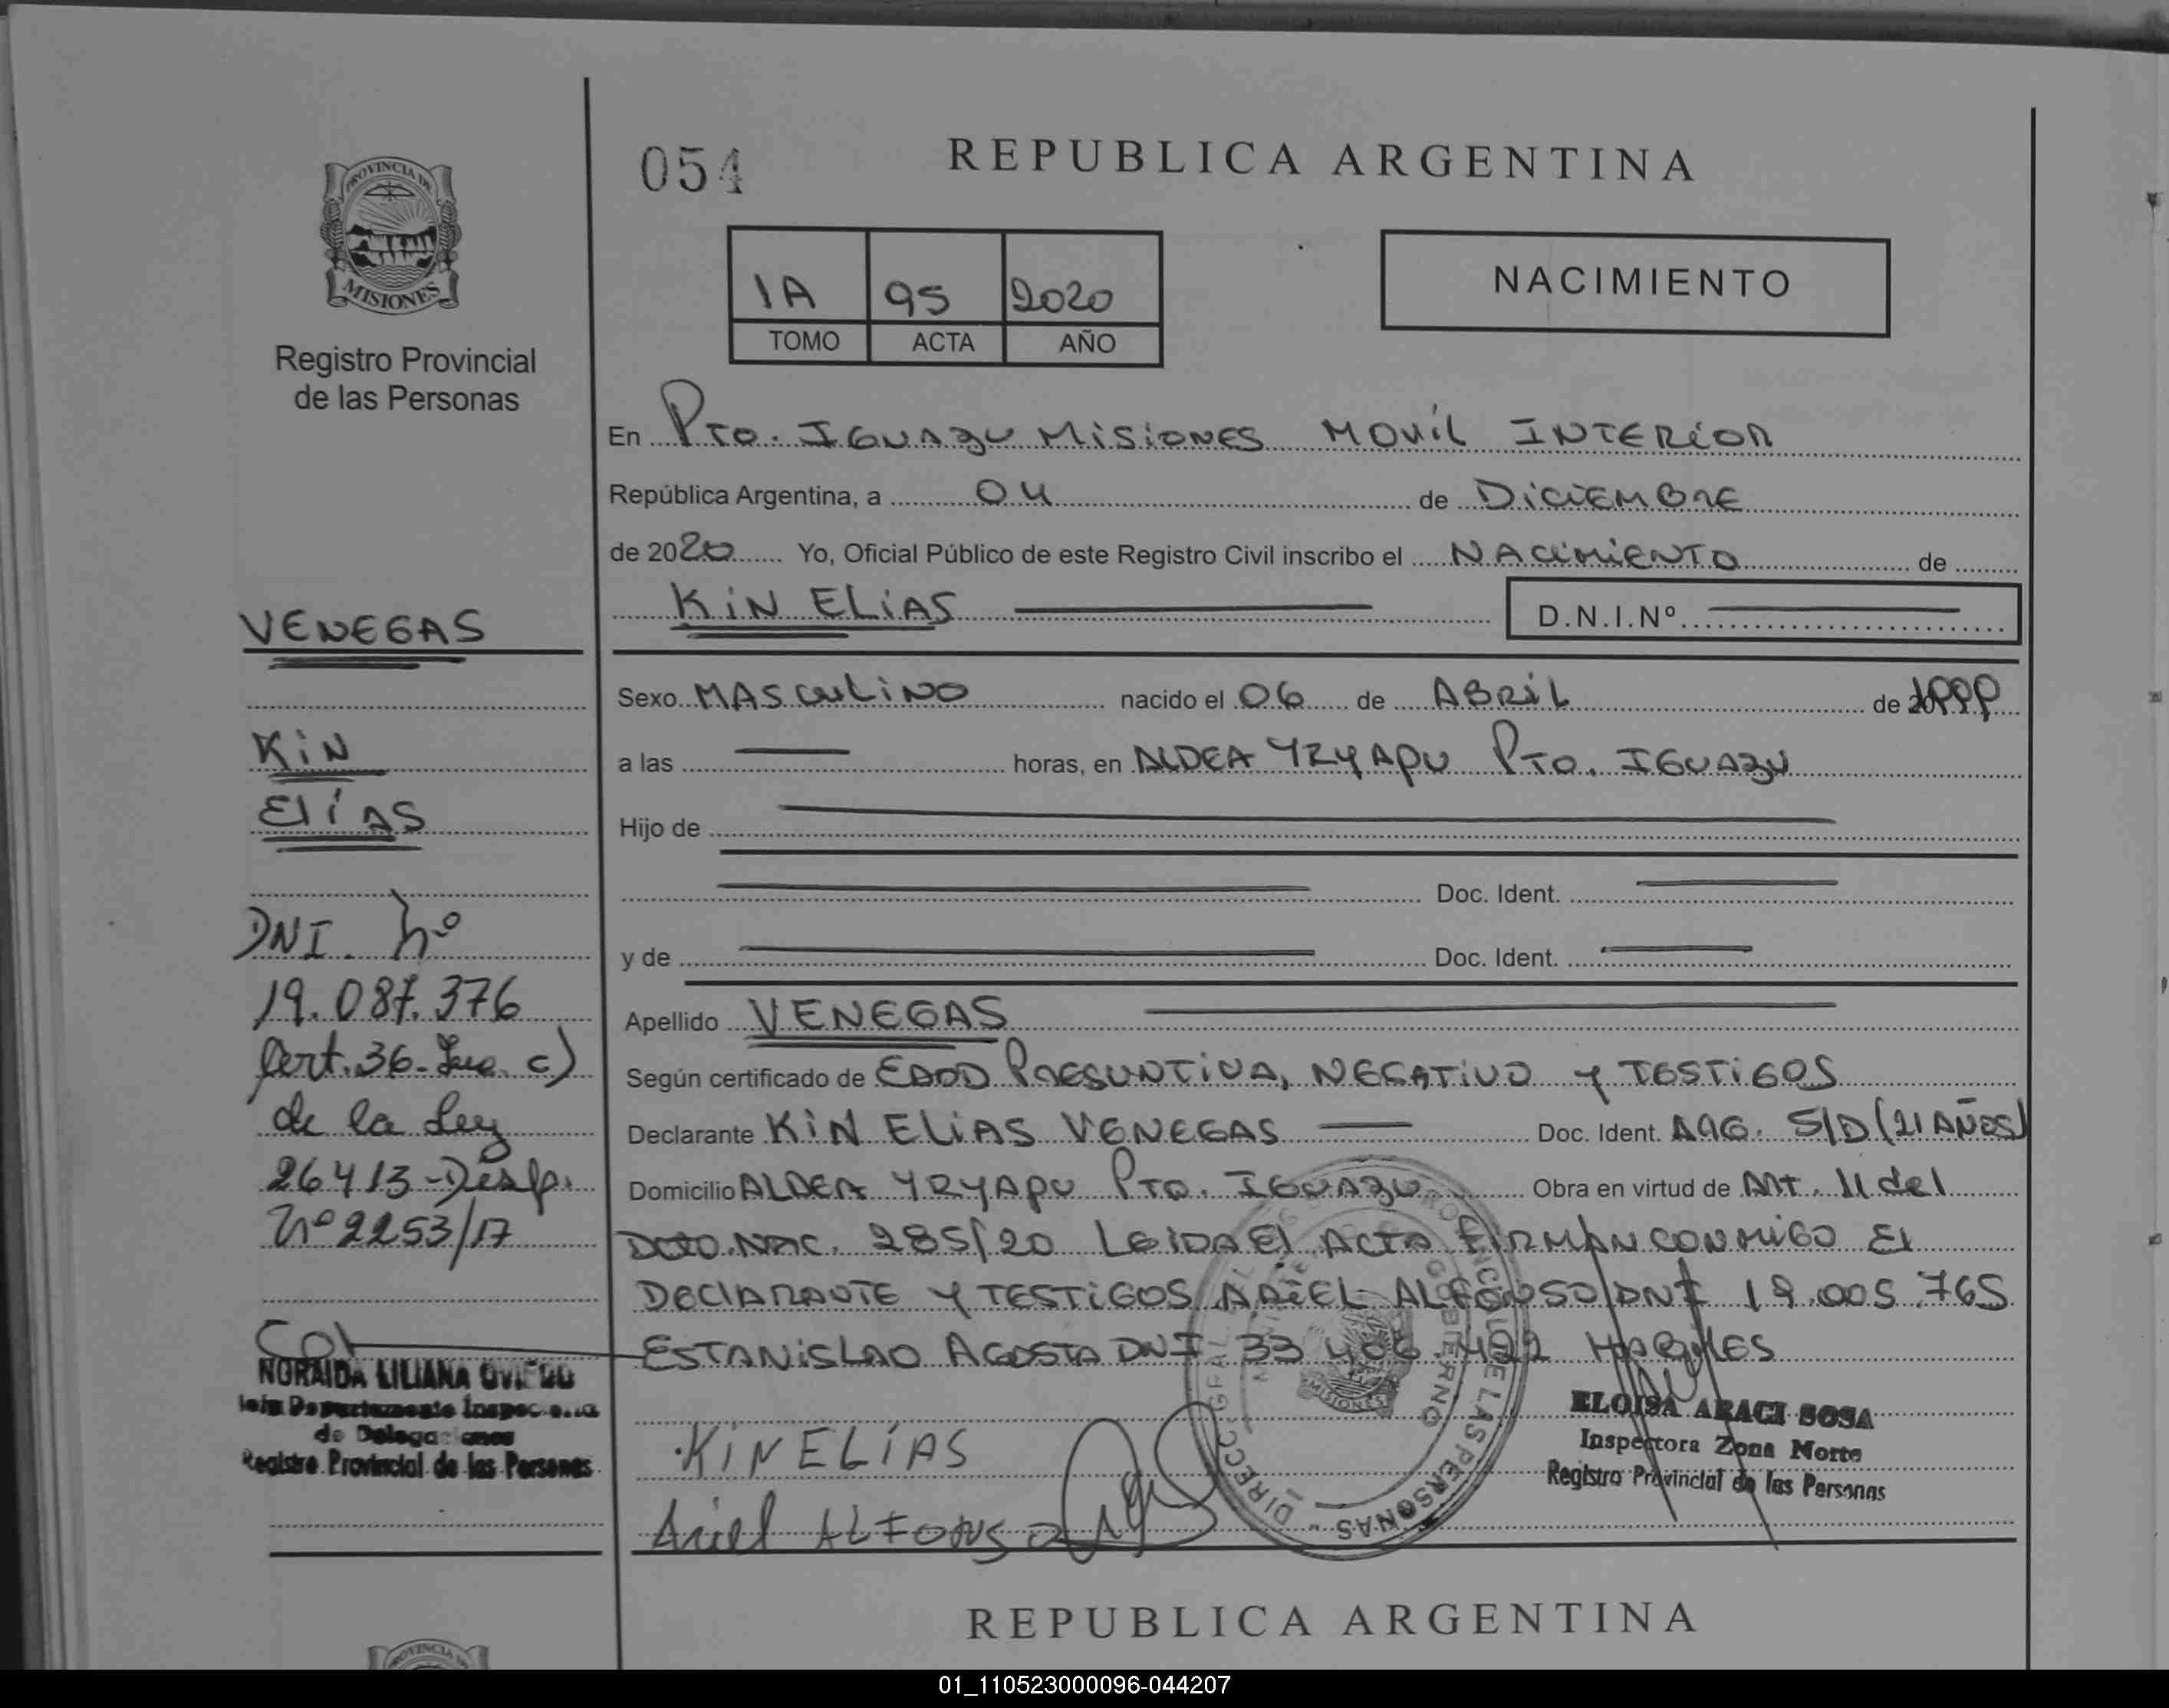 054
REPUBLICA ARGENTINA
PROVINCIA DE
MISIONES
Registro Provincial
de las Personas
1A 95 2020
TOMO ACTA AÑO
NACIMIENTO
En Pto. IGUAZU MISIONES MOVIL INTERIOR
República Argentina, a 04 de DICIEMBRE
de 2020 Yo, Oficial Público de este Registro Civil inscribo el NACIMIENTO de
KIN ELIAS D.N.I.Nº
VENEGAS
KIN
ELÍAS
DNI. Nº
19.087.376
Sexo MASCULINO nacido el 06 de ABRIL de 1999
a las horas, en ALDEA YRYAPU Pto. IGUAZU
Hijo de
Doc. Ident.
y de Doc. Ident.
Apellido VENEGAS
Según certificado de EDAD PRESUNTIVA, NEGATIVO Y TESTIGOS
Declarante KIN ELIAS VENEGAS Doc. Ident. ARG. S/D (21 AÑOS)
Domicilio ALDEA YRYAPU Pto. IGUAZU Obra en virtud de ART. 11 del
DCTO. NAC. 285/20 LEIDA EL ACTA FIRMAN CONMIGO EL
DECLARANTE Y TESTIGOS ARIEL ALFONSO DNI 19.005.765
ESTANISLAO AGOSTA DNI 33 406.492 HABILES
36- Inc. c)
de la Ley
26413-Disp.
Nº 2253/17
NORAIDA LILIANA OVIEDO
Jefe Departamento Inspectoria
de Delegaciones
Registro Provincial de las Personas
KIN ELÍAS
Ariel ALFONSO
ELOISA ARACI SOSA
Inspectora Zona Norte
Registro Provincial de las Personas
REPUBLICA ARGENTINA
01_110523000096-044207